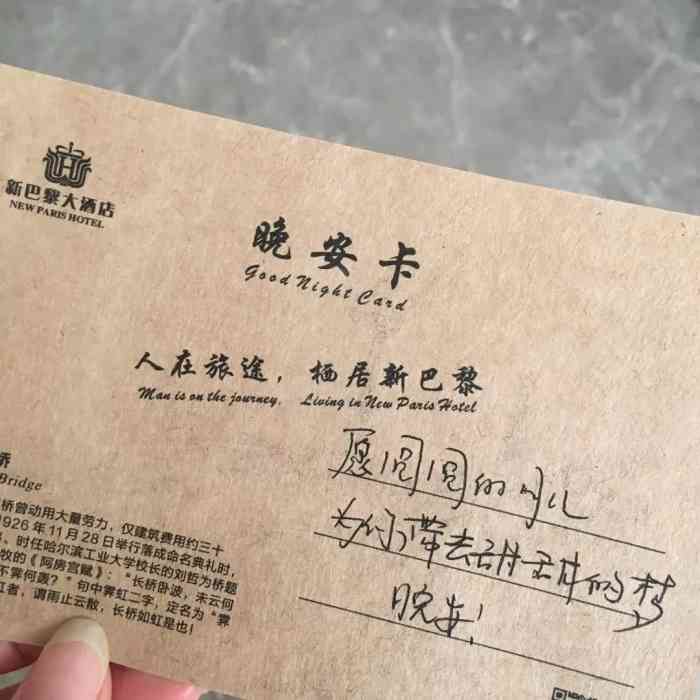 新巴黎大酒店
NEW PARIS HOTEL
晚安卡
Good Night Card
人在旅途，栖居新巴黎
Man is on the journey, Living in New Paris Hotel
桥
Bridge
桥曾动用大量劳力，仅建筑费用约三十
926年11月28日举行落成命名典礼时，
时任哈尔滨工业大学校长的刘哲为桥题
牧的《阿房宫赋》：“长桥卧波，未云何
不霁何轰？”句中霁虹二字，定名为“霁
虹者，谓雨止云散，长桥如虹是也！
愿圆圆的月儿
为你带去甜的梦
晚安！